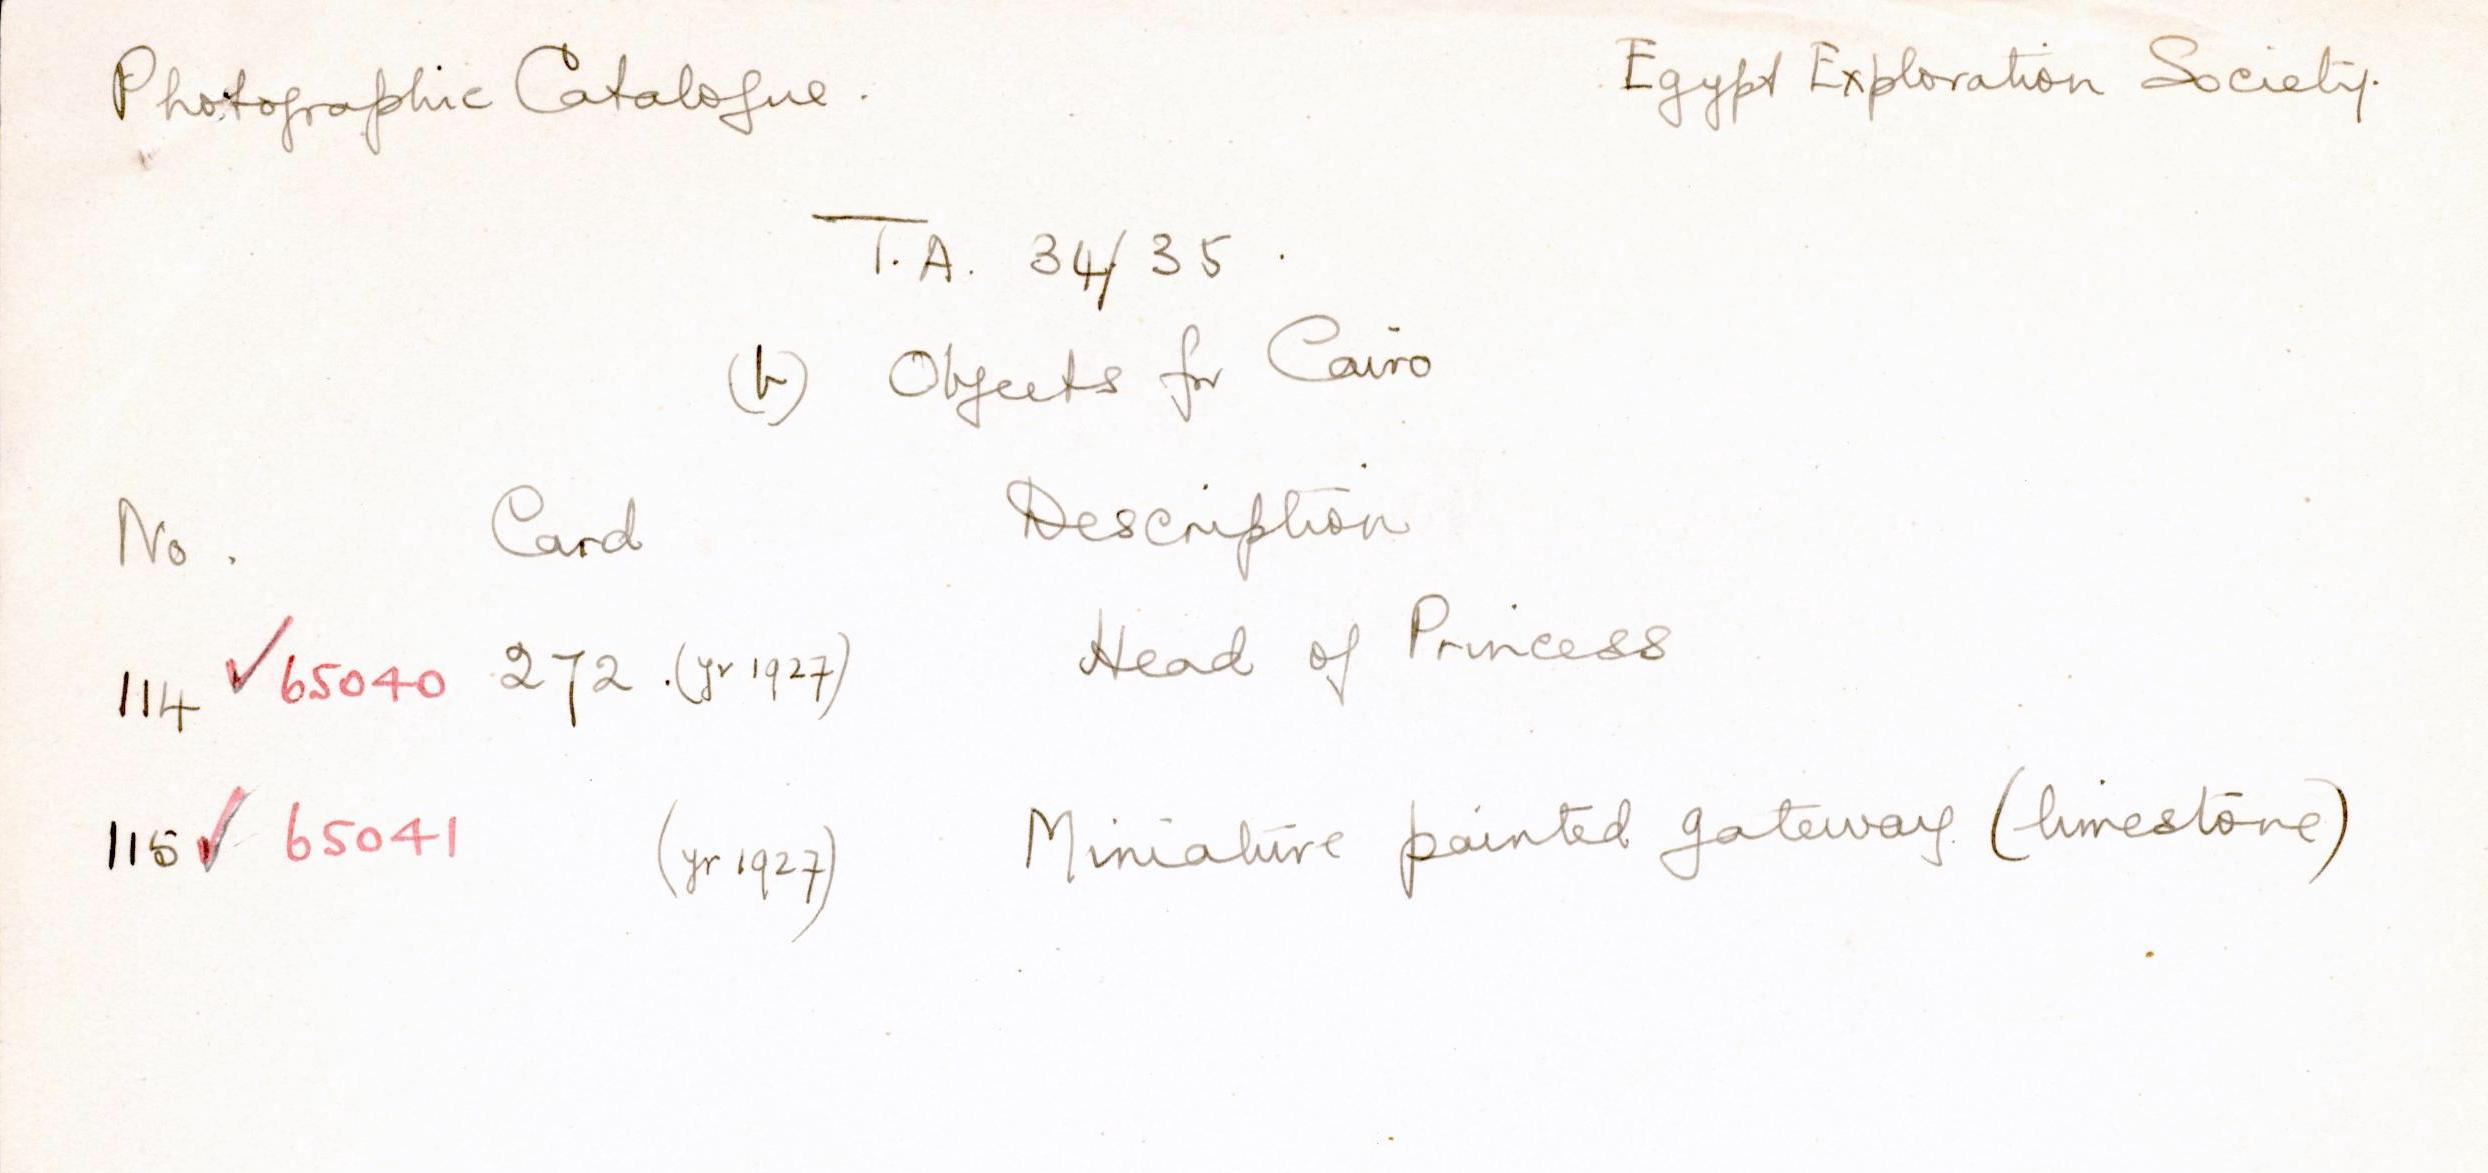 Photographic Catalogue. Egypt Exploration Society.
T.A. 34/35.
(b) Objects for Cairo
No. Card Description
114 ✓ 65040 272 (yr 1927) Head of Princess
115 ✓ 65041 (yr 1927) Miniature painted gateway (limestone)